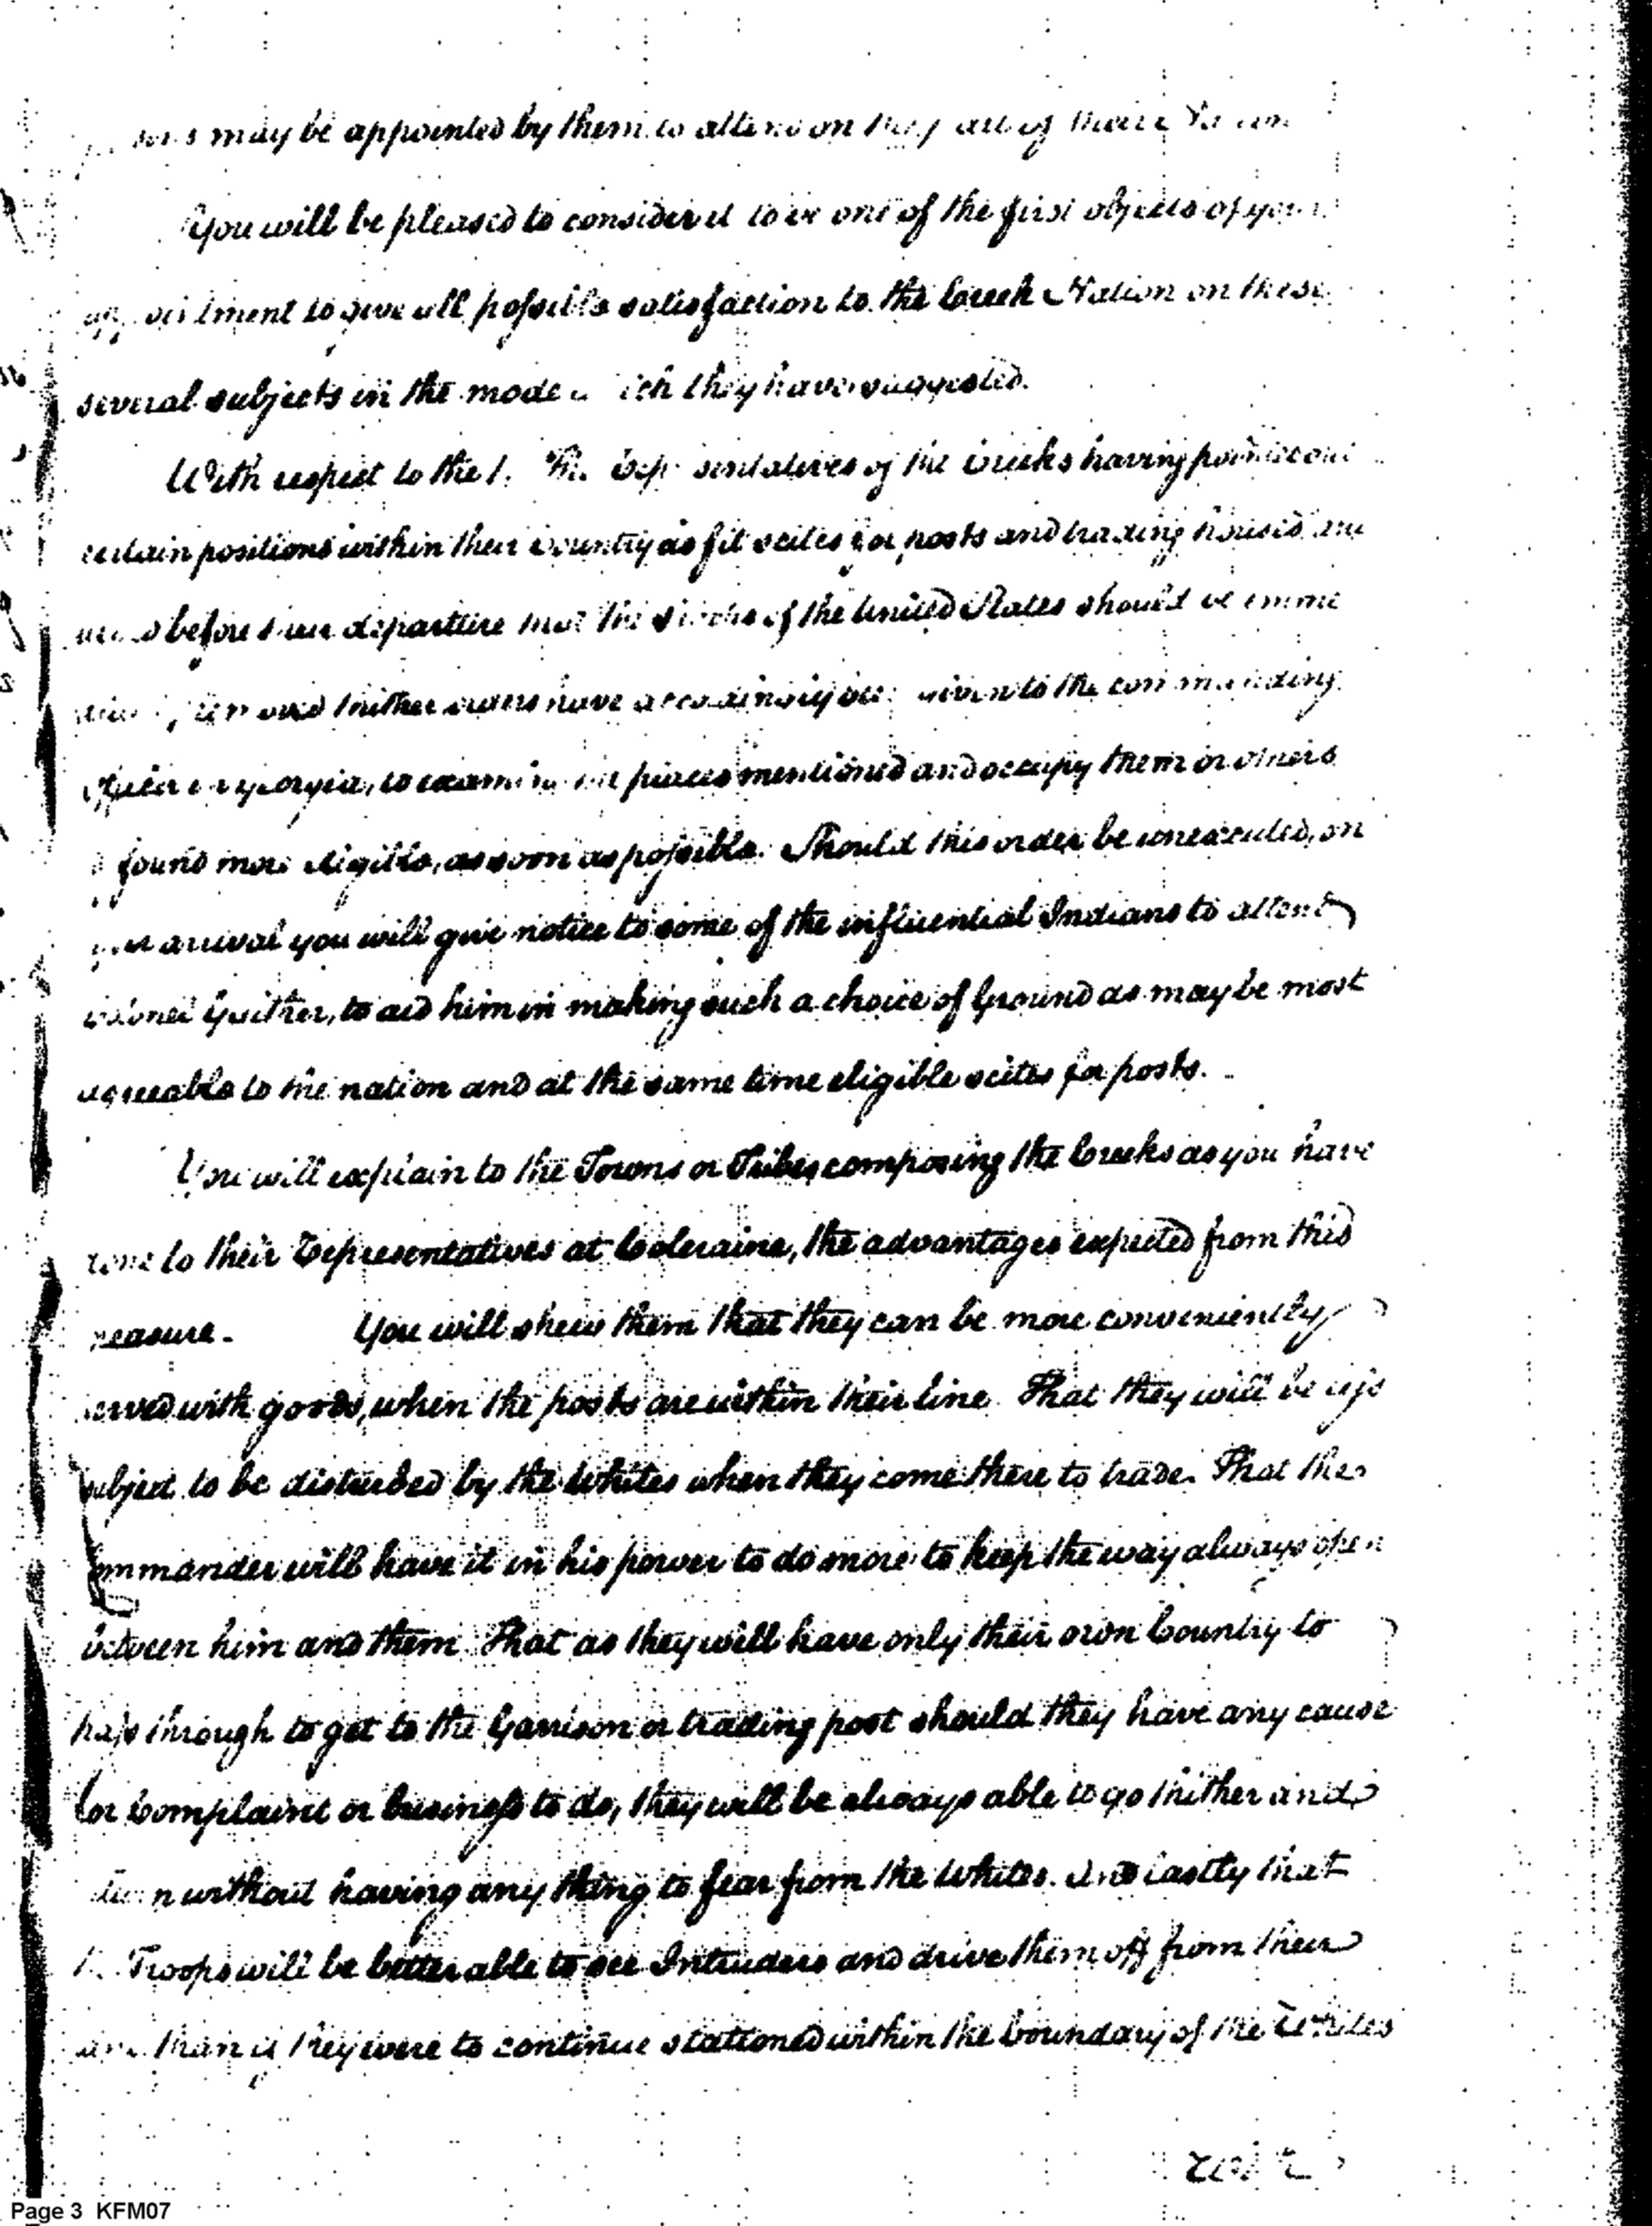 may be appointed by them to attend on the part of their Nation
You will be pleased to consider it to be one of the first objects of your
appointment to give all possible satisfaction to the Creek Nation on these
several subjects in the mode which they have suggested.
With respect to the 1. The Representatives of the Creeks having pointed out
certain positions within their Country as fit scites for posts and trading houses and
before their departure that the of the United States should be imme
removed thither orders have accordingly been given to the commanding
officer in Georgia, to examine the places mentioned and occupy them or others
if found more eligible, as soon as possible. Should this order be unexecuted, on
your arrival you will give notice to some of the influential Indians to attend
Colonel Gaither, to aid him in making such a choice of Ground as may be most
agreeable to the nation and at the same time eligible scites for posts.
You will explain to the Towns or Tribes composing the Creeks as you have
done to their Representatives at Coleraine, the advantages expected from this
measure. You will shew them that they can be more conveniently
served with goods, when the posts are within their line. That they will be less
subject to be disturbed by the Whites when they come there to trade. That the
Commander will have it in his power to do more to keep the way always open
between him and them. That as they will have only their own Country to
pass through to get to the Garrison or trading post should they have any cause
for Complaint or business to do, they will be always able to go thither and
return without having any thing to fear from the Whites. And lastly that
the Troops will be better able to see Intruders and drive them off from their
land than if they were to continue stationed within the boundary of the Whites
Page 3 KFM07